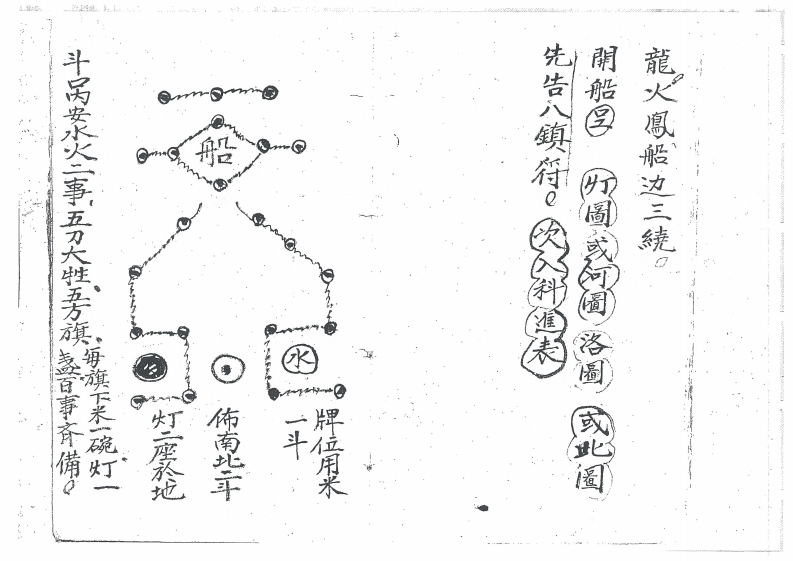 龍火鳳船边三繞。
開船呈 灯圖或河圖 洛圖 或此圖
先告八鎮符。次入科進表
船
水
火
牌位用米
一斗
佈南北二斗
灯二座於地
每旗下米一碗灯一
盞百事齊備。
斗口丙安水火二事、五刀大牲、五方旗、